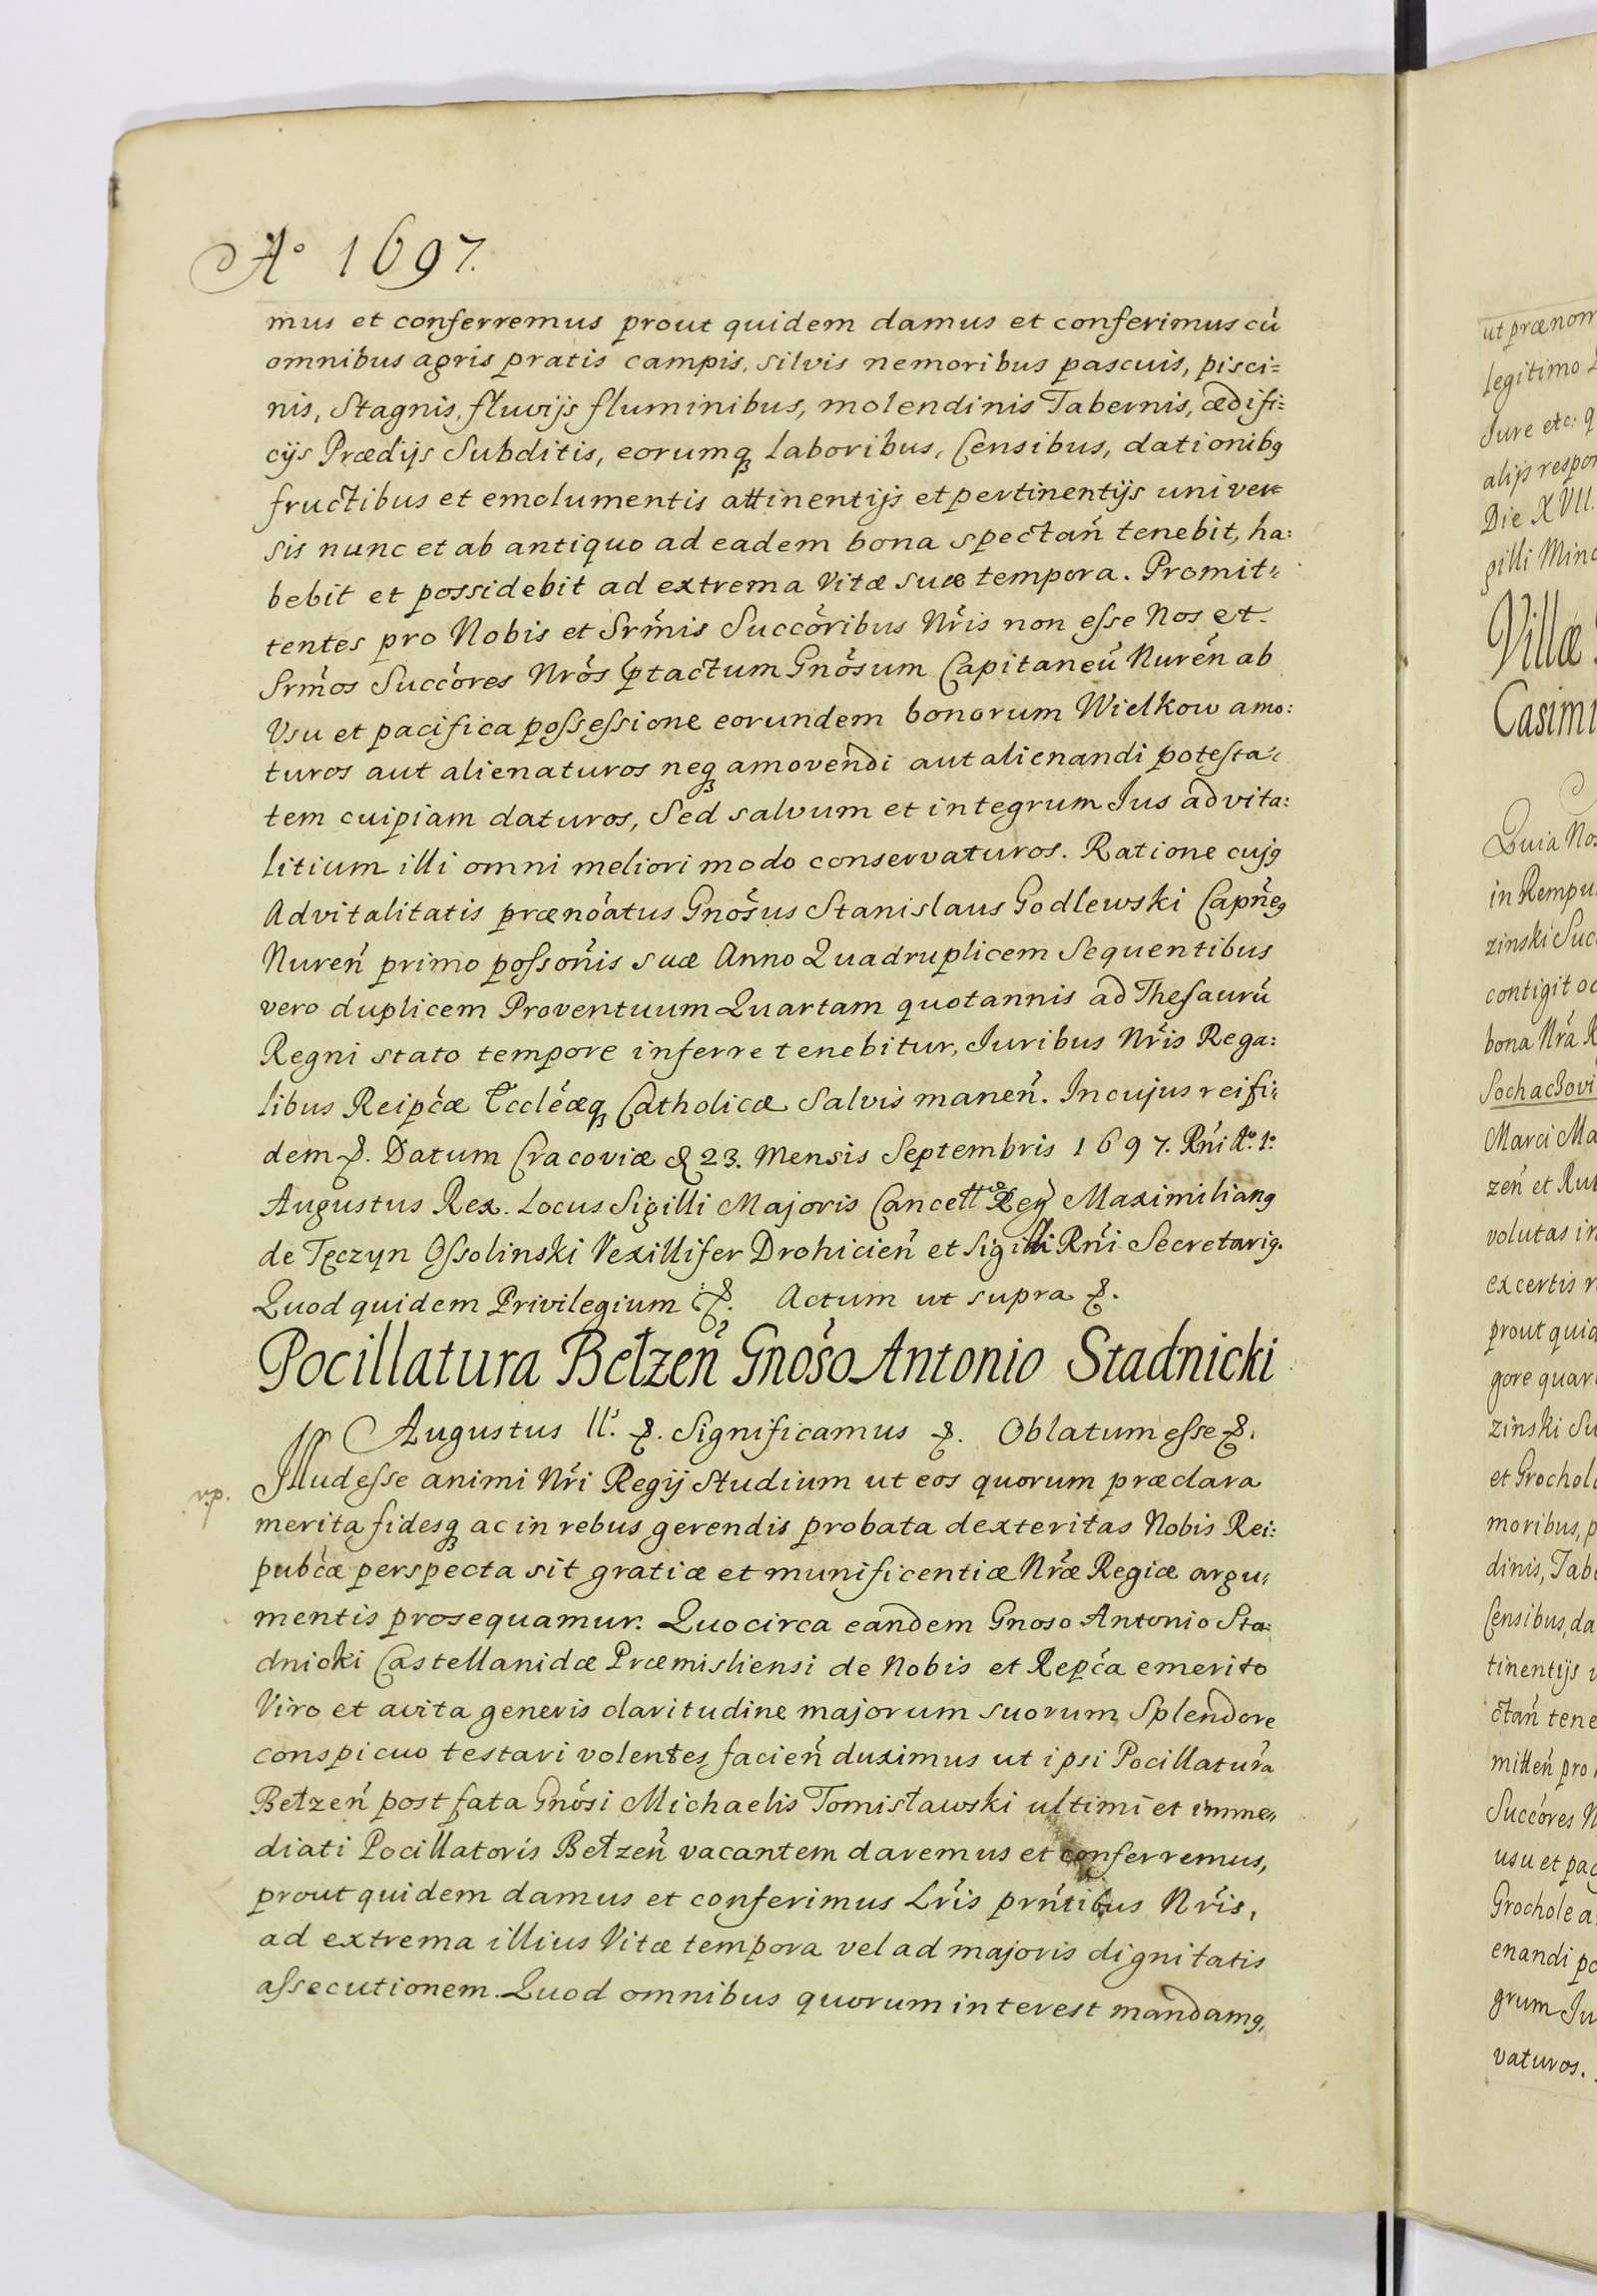 Aº 1697.
mus et conferremus prout quidem damus et conferimus cũ
omnibus agris pratis campis, silvis nemoribus pascuis, pisci=
nis, Stagnis, fluvijs fluminibus, molendinis Tabernis, ædifi=
cijs Prædijs Subditis, eorumq₃ laboribus, Censibus, dationibꝰ
fructibus et emolumentis attinentijs et pertinentijs univer=
sis nunc et ab antiquo ad eadem bona spectań tenebit, ha:
bebit et possidebit ad extrema Vitæ suæ tempora. Promit=
tentes pro Nobis et Srḿis Succóribus Nŕis non esse Nos et
Srḿos Succóres Nrós ꝑtactum Gnósum Capitaneũ Nurén ab
Usu et pacifica possessione eorundem bonorum Wielkow amo:
turos aut alienaturos neq₃ amovendi aut alienandi potesta=
tem cuipiam daturos, Sed salvum et integrum Jus advita:
litium illi omni meliori modo conservaturos. Ratione cujꝰ
Advitalitatis prænóatus Gnósus Stanislaus Godlewski Capńeꝰ
Nureń primo possońis suæ Anno Quadruplicem Sequentibus
vero duplicem Proventuum Quartam quotannis ad Thesaurũ
Regni stato tempore inferre tenebitur, Juribus Nŕis Rega:
libus Reipćæ Eccleáeq₃ Catholicæ Salvis maneń. In cujus rei fi=
dem &. Datum Cracoviæ d 23. Mensis Septembris 1697. Rńi Aº. 1º
Augustus Rex. Locus Sigilli Majoris Cancell Regꝰ Maximilianꝰ
de Tęczyn Ossolinski Vexillifer Drohicień et Sigilli Rńi Secretariꝰ.
Quod quidem Privilegium &. Actum ut supra &.
Pocillatura Bełzeń Gnóso Antonio Stadnicki
Augustus II. &. Significamus &. Oblatum esse &.
Illud esse animi Nŕi Regij Studium ut eos quorum præclara
merita fidesq₃ ac in rebus gerendis probata dexteritas Nobis Rei:
pubćæ perspecta sit gratiæ et munificentiæ Nŕæ Regiæ argu=
mentis prosequamur. Quocirca eandem Gnoso Antonio Sta=
dnicki Castellanidæ Præmisliensi de Nobis et Repća emerito
Viro et avita generis claritudine majorum suorum Splendore
conspicuo testari volentes facień duximus ut ipsi Pocillatũra
Bełzeń post fata Gnósi Michaelis Tomisławski ultimi et imme=
diati Pocillatoris Bełzeń vacantem daremus et conferremus,
prout quidem damus et conferimus Lŕis prńtibus Nŕis,
ad extrema illius Vitæ tempora vel ad majoris dignitatis
assecutionem. Quod omnibus quorum interest mandamꝰ,
vp.
ut prænom
legitimo
Jure etc: q
alijs respon
Die XVII.
gilli Mino
Villæ
Casimi
Quia Nos
in Rempu
zinski Suc
contigit oc
bona Nŕa R
Sochaczovi
Marci Ma
zeń et Rut
volutas in
ex certis r
prout quid
gore quar
zinski Su
et Grochol
moribus, p
dinis, Tab
Censibus, da
tinentijs
ctań tene
mitteń pro
Succóres N
usu et pac
Grochole a
enandi po
grum Ju
vaturos.